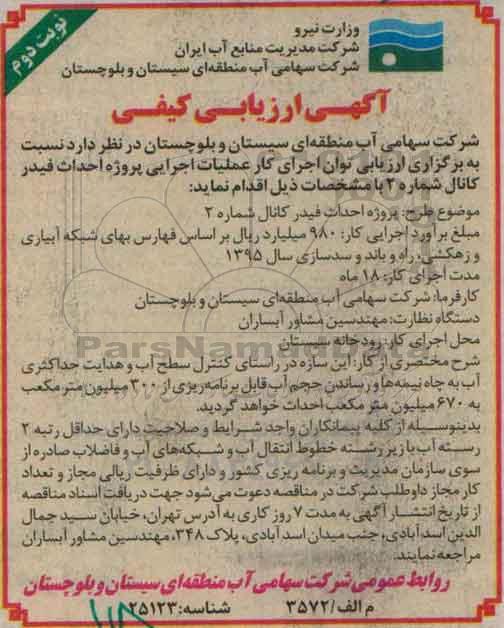 نوبت دوم
وزارت نیرو
شرکت مدیریت منابع آب ایران
شرکت سهامی آب منطقه‌ای سیستان و بلوچستان
آگهی ارزیابی کیفی
شرکت سهامی آب منطقه‌ای سیستان و بلوچستان در نظر دارد نسبت
به برگزاری ارزیابی توان اجرای کار عملیات اجرایی پروژه احداث فیدر
کانال شماره ۲ با مشخصات ذیل اقدام نماید:
موضوع طرح: پروژه احداث فیدر کانال شماره ۲
مبلغ برآورد اجرایی کار: ۹۸۰ میلیارد ریال بر اساس فهارس بهای شبکه آبیاری
و زهکشی، راه و باند و سدسازی سال ۱۳۹۵
مدت اجرای کار: ۱۸ ماه
کارفرما: شرکت سهامی آب منطقه‌ای سیستان و بلوچستان
دستگاه نظارت: مهندسین مشاور آبساران
محل اجرای کار: رودخانه سیستان
ParsNamadData
شرح مختصری از کار: این سازه در راستای کنترل سطح آب و هدایت حداکثری
آب به چاه نیمه‌ها و رساندن حجم آب قابل برنامه‌ریزی از ۳۰۰ میلیون متر مکعب
به ۶۷۰ میلیون متر مکعب احداث خواهد گردید.
بدینوسیله از کلیه پیمانکاران واجد شرایط و صلاحیت دارای حداقل رتبه ۲
رسته آب با زیر رشته خطوط انتقال آب و شبکه‌های آب و فاضلاب صادره از
سوی سازمان مدیریت و برنامه ریزی کشور و دارای ظرفیت ریالی مجاز و تعداد
کار مجاز داوطلب شرکت در مناقصه دعوت می‌شود جهت دریافت اسناد مناقصه
از تاریخ انتشار آگهی به مدت ۷ روز کاری به آدرس تهران، خیابان سید جمال
الدین اسدآبادی، جنب میدان اسدآبادی، پلاک ۳۴۸، مهندسین مشاور آبساران
مراجعه نمایند.
روابط عمومی شرکت سهامی آب منطقه‌ای سیستان و بلوچستان
م الف/۳۵۷۲ شناسه: ۲۵۱۲۳